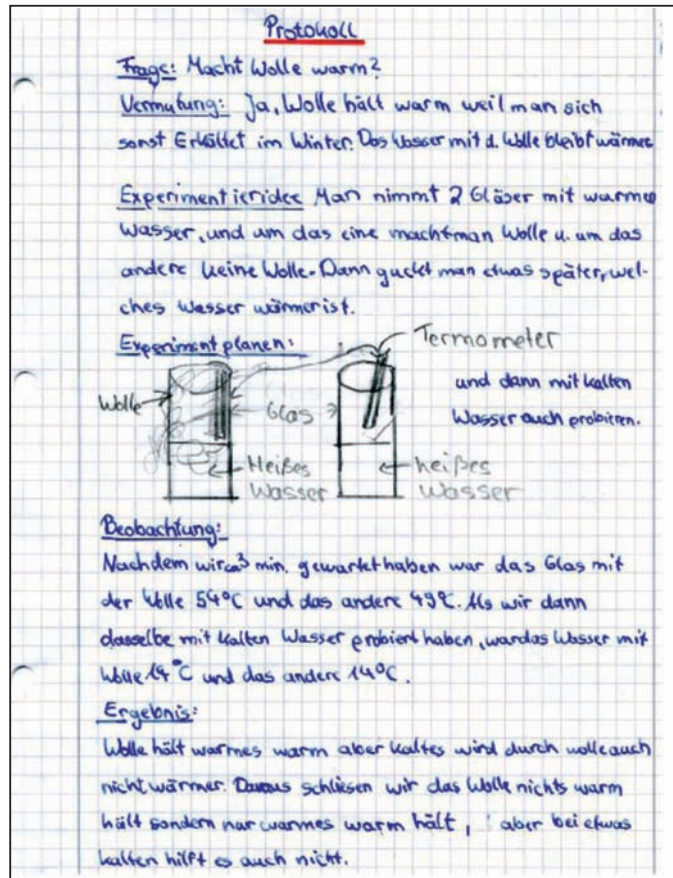 Protokoll
Frage: Macht Wolle warm?
Vermutung: Ja, Wolle hält warm weil man sich
sonst Erkältet im Winter. Das Wasser mit d. Wolle bleibt wärmer
Experimentieridee Man nimmt 2 Gläser mit warmen
Wasser, und um das eine macht man Wolle u. um das
andere keine Wolle. Dann guckt man etwas später, wel-
ches Wasser wärmer ist.
Experiment planen:
Termometer
und dann mit kalten
Wasser auch probieren.
Wolle
Glas
Heißes
Wasser
heißes
Wasser
Beobachtung:
Nachdem wir ca 3 min. gewartet haben war das Glas mit
der Wolle 54°C und das andere 49°C. Als wir dann
dasselbe mit kalten Wasser probiert haben, war das Wasser mit
Wolle 14°C und das andere 14°C.
Ergebnis:
Wolle hält warmes warm aber kaltes wird durch wolle auch
nicht wärmer. Daraus schliesen wir das Wolle nichts warm
hält sondern nur warmes warm hält, aber bei etwas
kalten hilft es auch nicht.